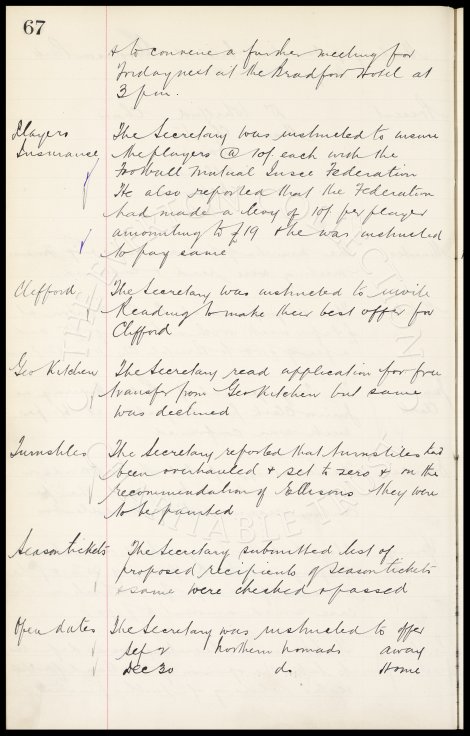 67
& to convene a further meeting for
Friday next at the Bradford Hotel at
3 pm.
Players The Secretary was instructed to insure
Insurance the players @ 10/ each with the
Football Mutual Insce Federation
He also reported that the Federation
had made a levy of 10/ per player
amounting to £19 & he was instructed
to pay same
Clifford The Secretary was instructed to invite
Reading to make their best offer for
Clifford
Geo Kitchen The Secretary read application for free
transfer from Geo Kitchen but same
was declined
Turnstiles The Secretary reported that turnstiles had
been overhauled & set to zero & on the
recommendation of Ellisons they were
to be painted
Season tickets The Secretary submitted list of
proposed recipients of season tickets
& same were checked & passed
Open dates The Secretary was instructed to offer
Sep 2 Northern Nomads away
Dec 30 do Home